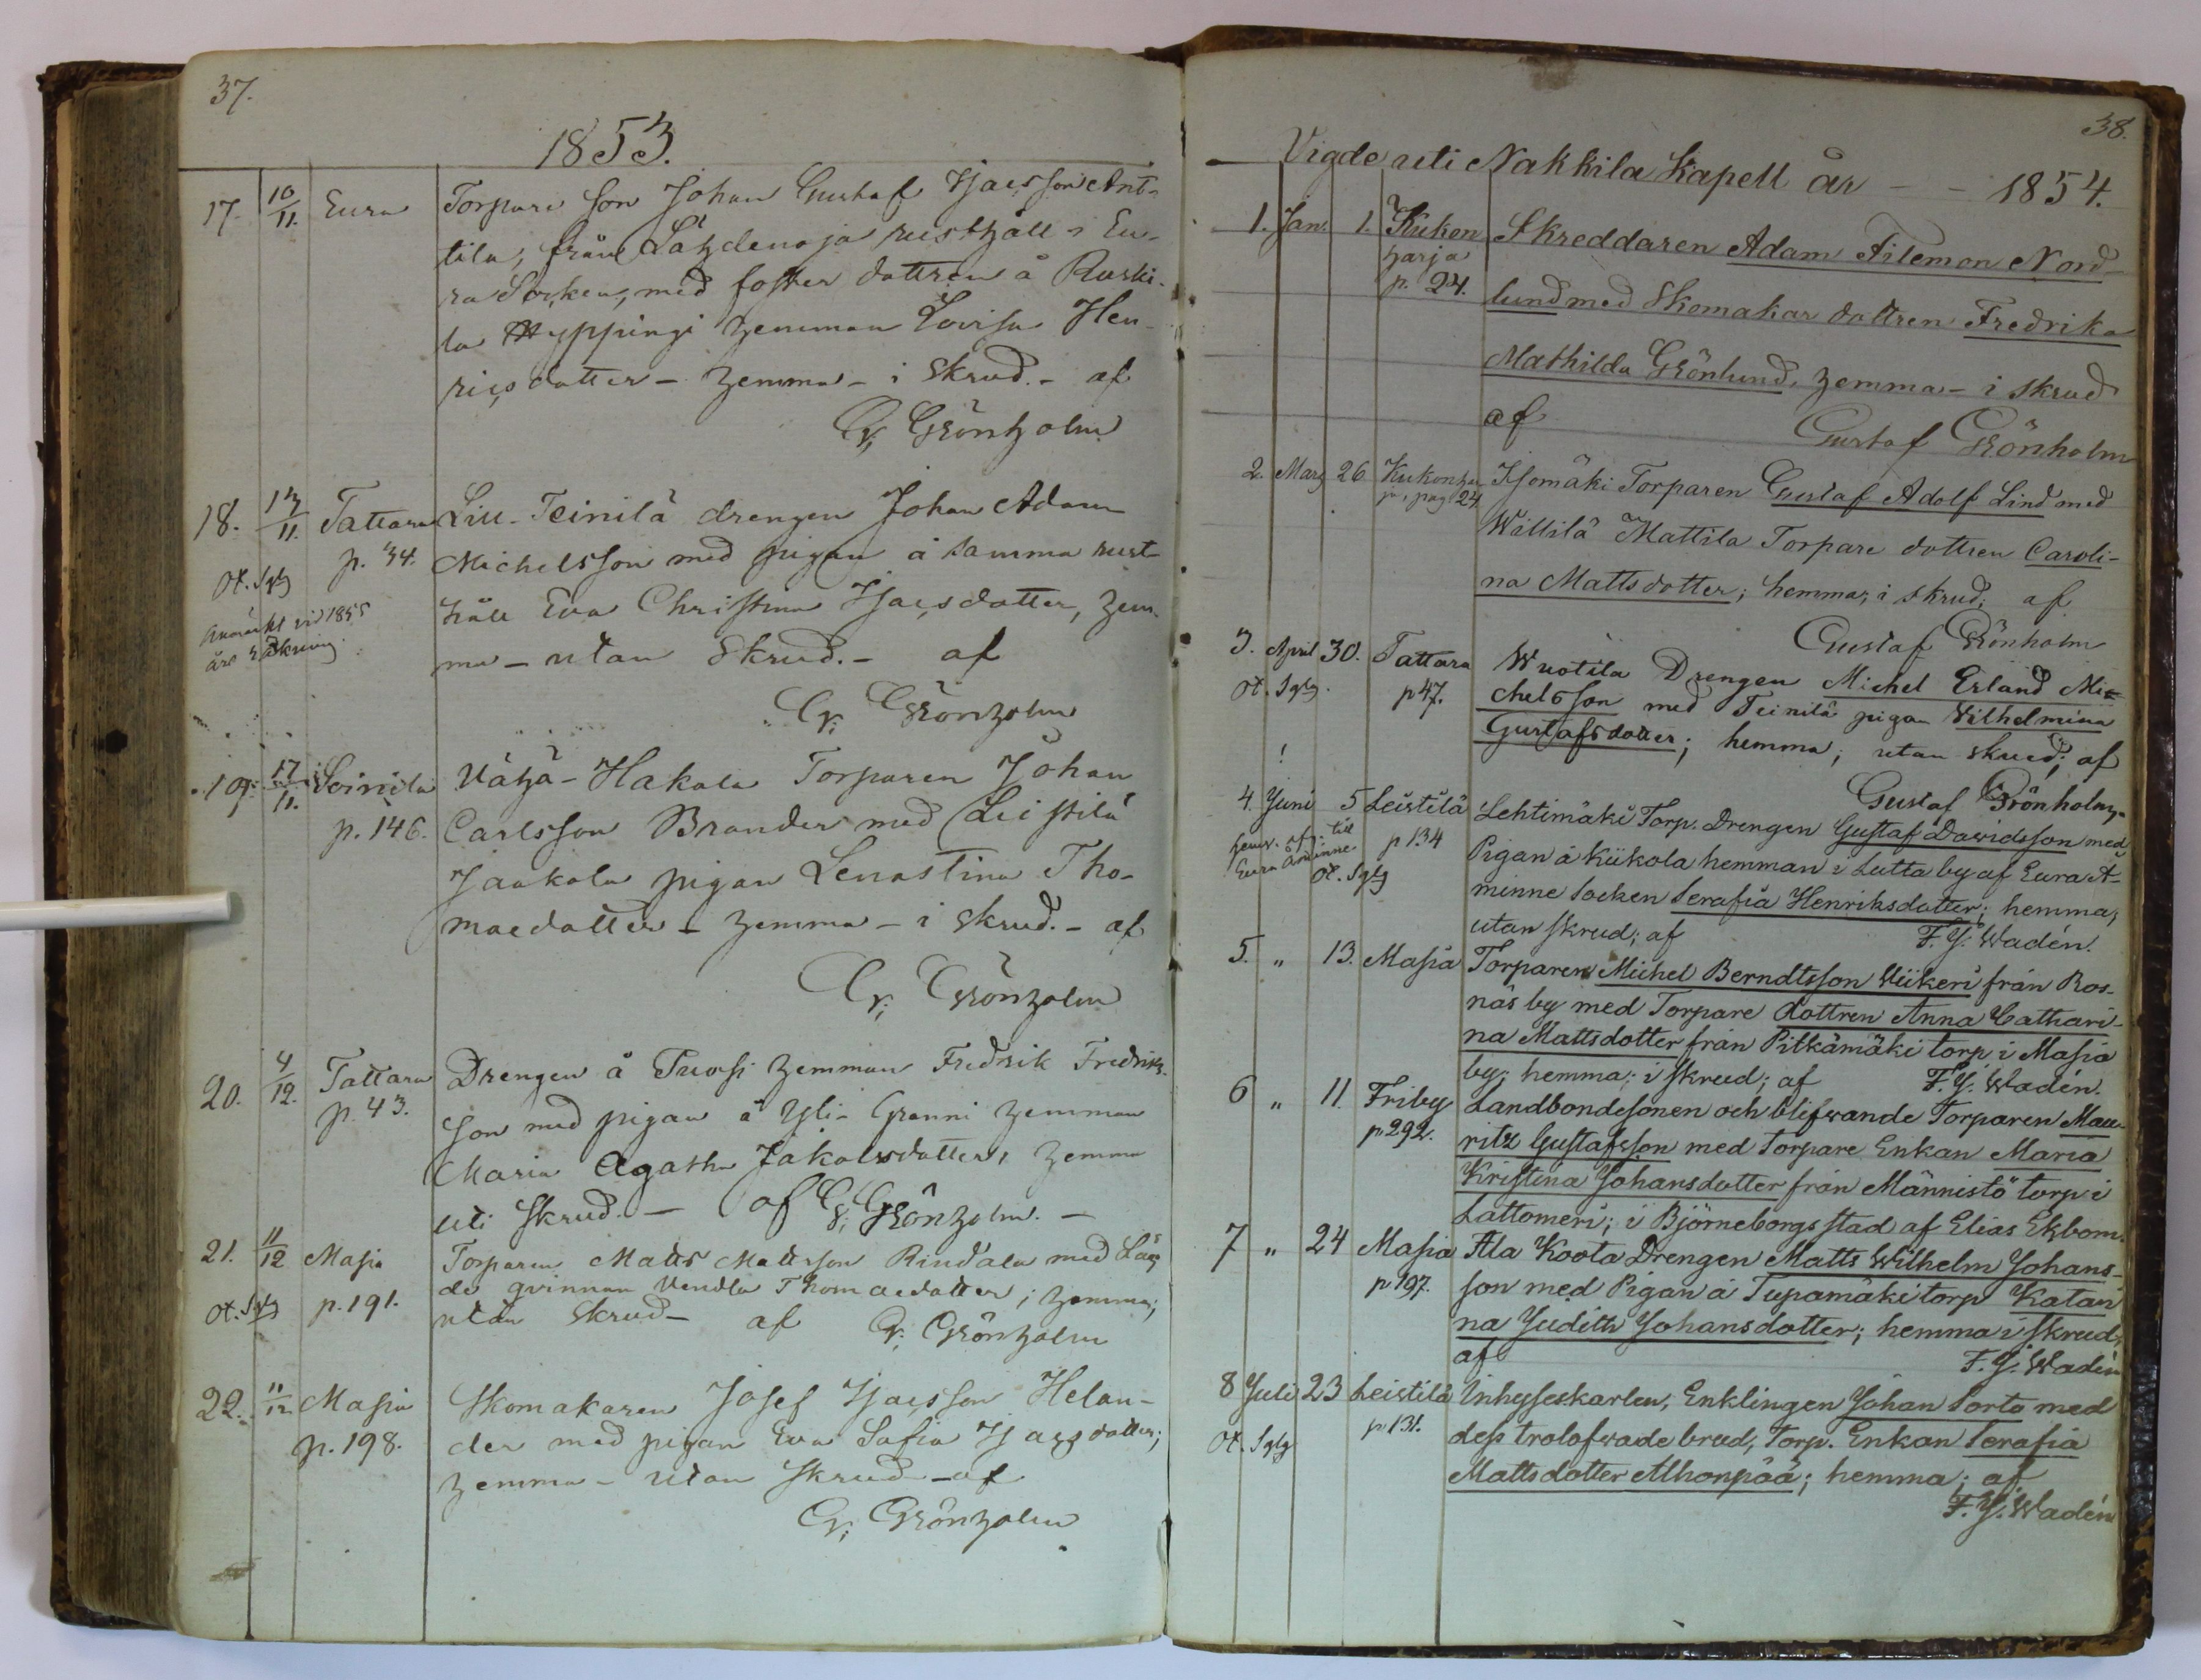 37.
1853.
17. 10/11. Eura Torpare Son Johan Gustaf Isacsson Ant-
tila, från Lähdenoja rusthåll i Eu-
ra Socken, med foster dottren å Ruski-
la Hyppingi hemman Lovisa Hen-
ricsdotter - hemma - i skrud. - af
G. Grönholm
18. 13/11. Tattara Liu-Teinilä drengen Johan Adam
p. 34. Michelsson med pigan å samma rust-
Ot. Sglg
håll Eva Christina Isacsdotter, hem-
Anmärkt vid 1855
års räkning.
ma - utan Skrud. - af
G. Grönholm
19. 17/11. Soinila Vähä-Hakala Torparen Johan
p. 146. Carlsson Brander med Leistilä
Jaakola pigan Lenastina Tho-
maedotter - hemma - i skrud. - af
G. Grönholm
20. 4/12. Tattara Drengen å Tuosi hemman Fredrik Fredriks-
p. 43. son med pigan å Yli-Granni hemman
Maria Agatha Jakobsdotter, hemma
uti Skrud. - af G. Grönholm. -
21. 11/12 Masia Torparen Matts Mattsson Rindala med Läg-
de qvinnan Vendla Thomaedotter; hemma;
Ot. Sglg p. 191. utan Skrud - af G. Grönholm
22. 11/12 Masia Skomakaren Josef Isacsson Helan-
p. 198. der med pigan Eva Sofia Isacsdotter;
hemma - utan skrud - af
G. Grönholm
38.
Vigde uti Nakkila Kapell år - - 1854.
1. Jan. 1. Kukon Skreddaren Adam Filemon Nord-
harja
p. 24. lund med Skomakar dottren Fredrika
Mathilda Grönlund, hemma - i skrud
af Gustaf Grönholm
2. Mars 26 Kukonhar Isomäki Torparen Gustaf Adolf Lind med
ja, pag 24
Wiltilä Mattila Torpare dottren Caroli-
na Mattsdotter; hemma, i skrud; af
Gustaf Grönholm
3. April 30. Tattara Wuotila Drengen Michel Erland Mi-
Ot. Sglg. p 47. chelsson med Teinilä pigan Vilhelmina
Gustafsdotter; hemma; utan skrud; af
Gustaf Grönholm.
4. Juni 5 Leistilä Lehtimäki Torp. Drengen Gustaf Davidsson med
hemv. af. till p 134 Pigan å Kiikola hemman i Lutta by af Eura Å-
Eura Åminne.
Ot. Sglg minne Socken Serafia Henriksdotter; hemma;
utan skrud; af F. J. Wadén.
5. " 13. Masia Torparen Michel Berndtsson Wiikeri från Ros-
näs by med Torpare dottren Anna Cathari-
na Mattsdotter från Pitkämäki torp i Masia
by; hemma; i skrud; af F. J. Wadén.
6 " 11. Friby Landbondesonen och blifvande Torparen Mau-
p 292. ritz Gustafsson med Torpare Enkan Maria
Kristina Johansdotter från Männistö torp i
Lattomeri; i Björneborgs stad af Elias Ekbom.
7 " 24 Masia Ala Koota Drengen Matts Wilhelm Johans-
p 197. son med Pigan å Tupamäki torp Katari-
na Judith Johansdotter; hemma i skrud;
af F. J. Wadén
8 Juli 23 Leistilä Inhyseskarlen, Enklingen Johan Sorto med
Ot. Sglg p 131. dess trolofvade brud, Torp. Enkan Serafia
Mattsdotter Alhonpää; hemma; af
F. J. Wadén